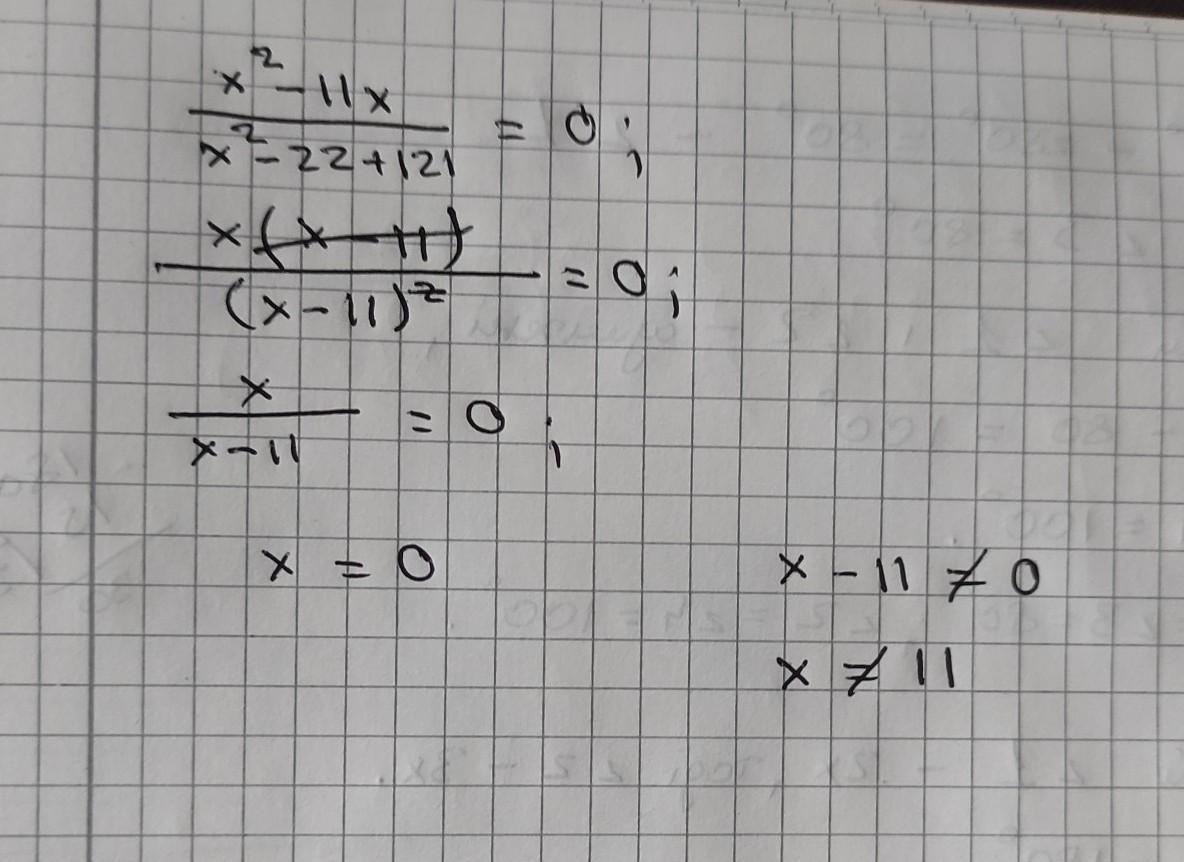 x² - 11x
x² - 22 + 121 = 0;
x(x - 11)
(x - 11)² = 0;
x
x - 11 = 0;
x = 0
x - 11 ≠ 0
x ≠ 11